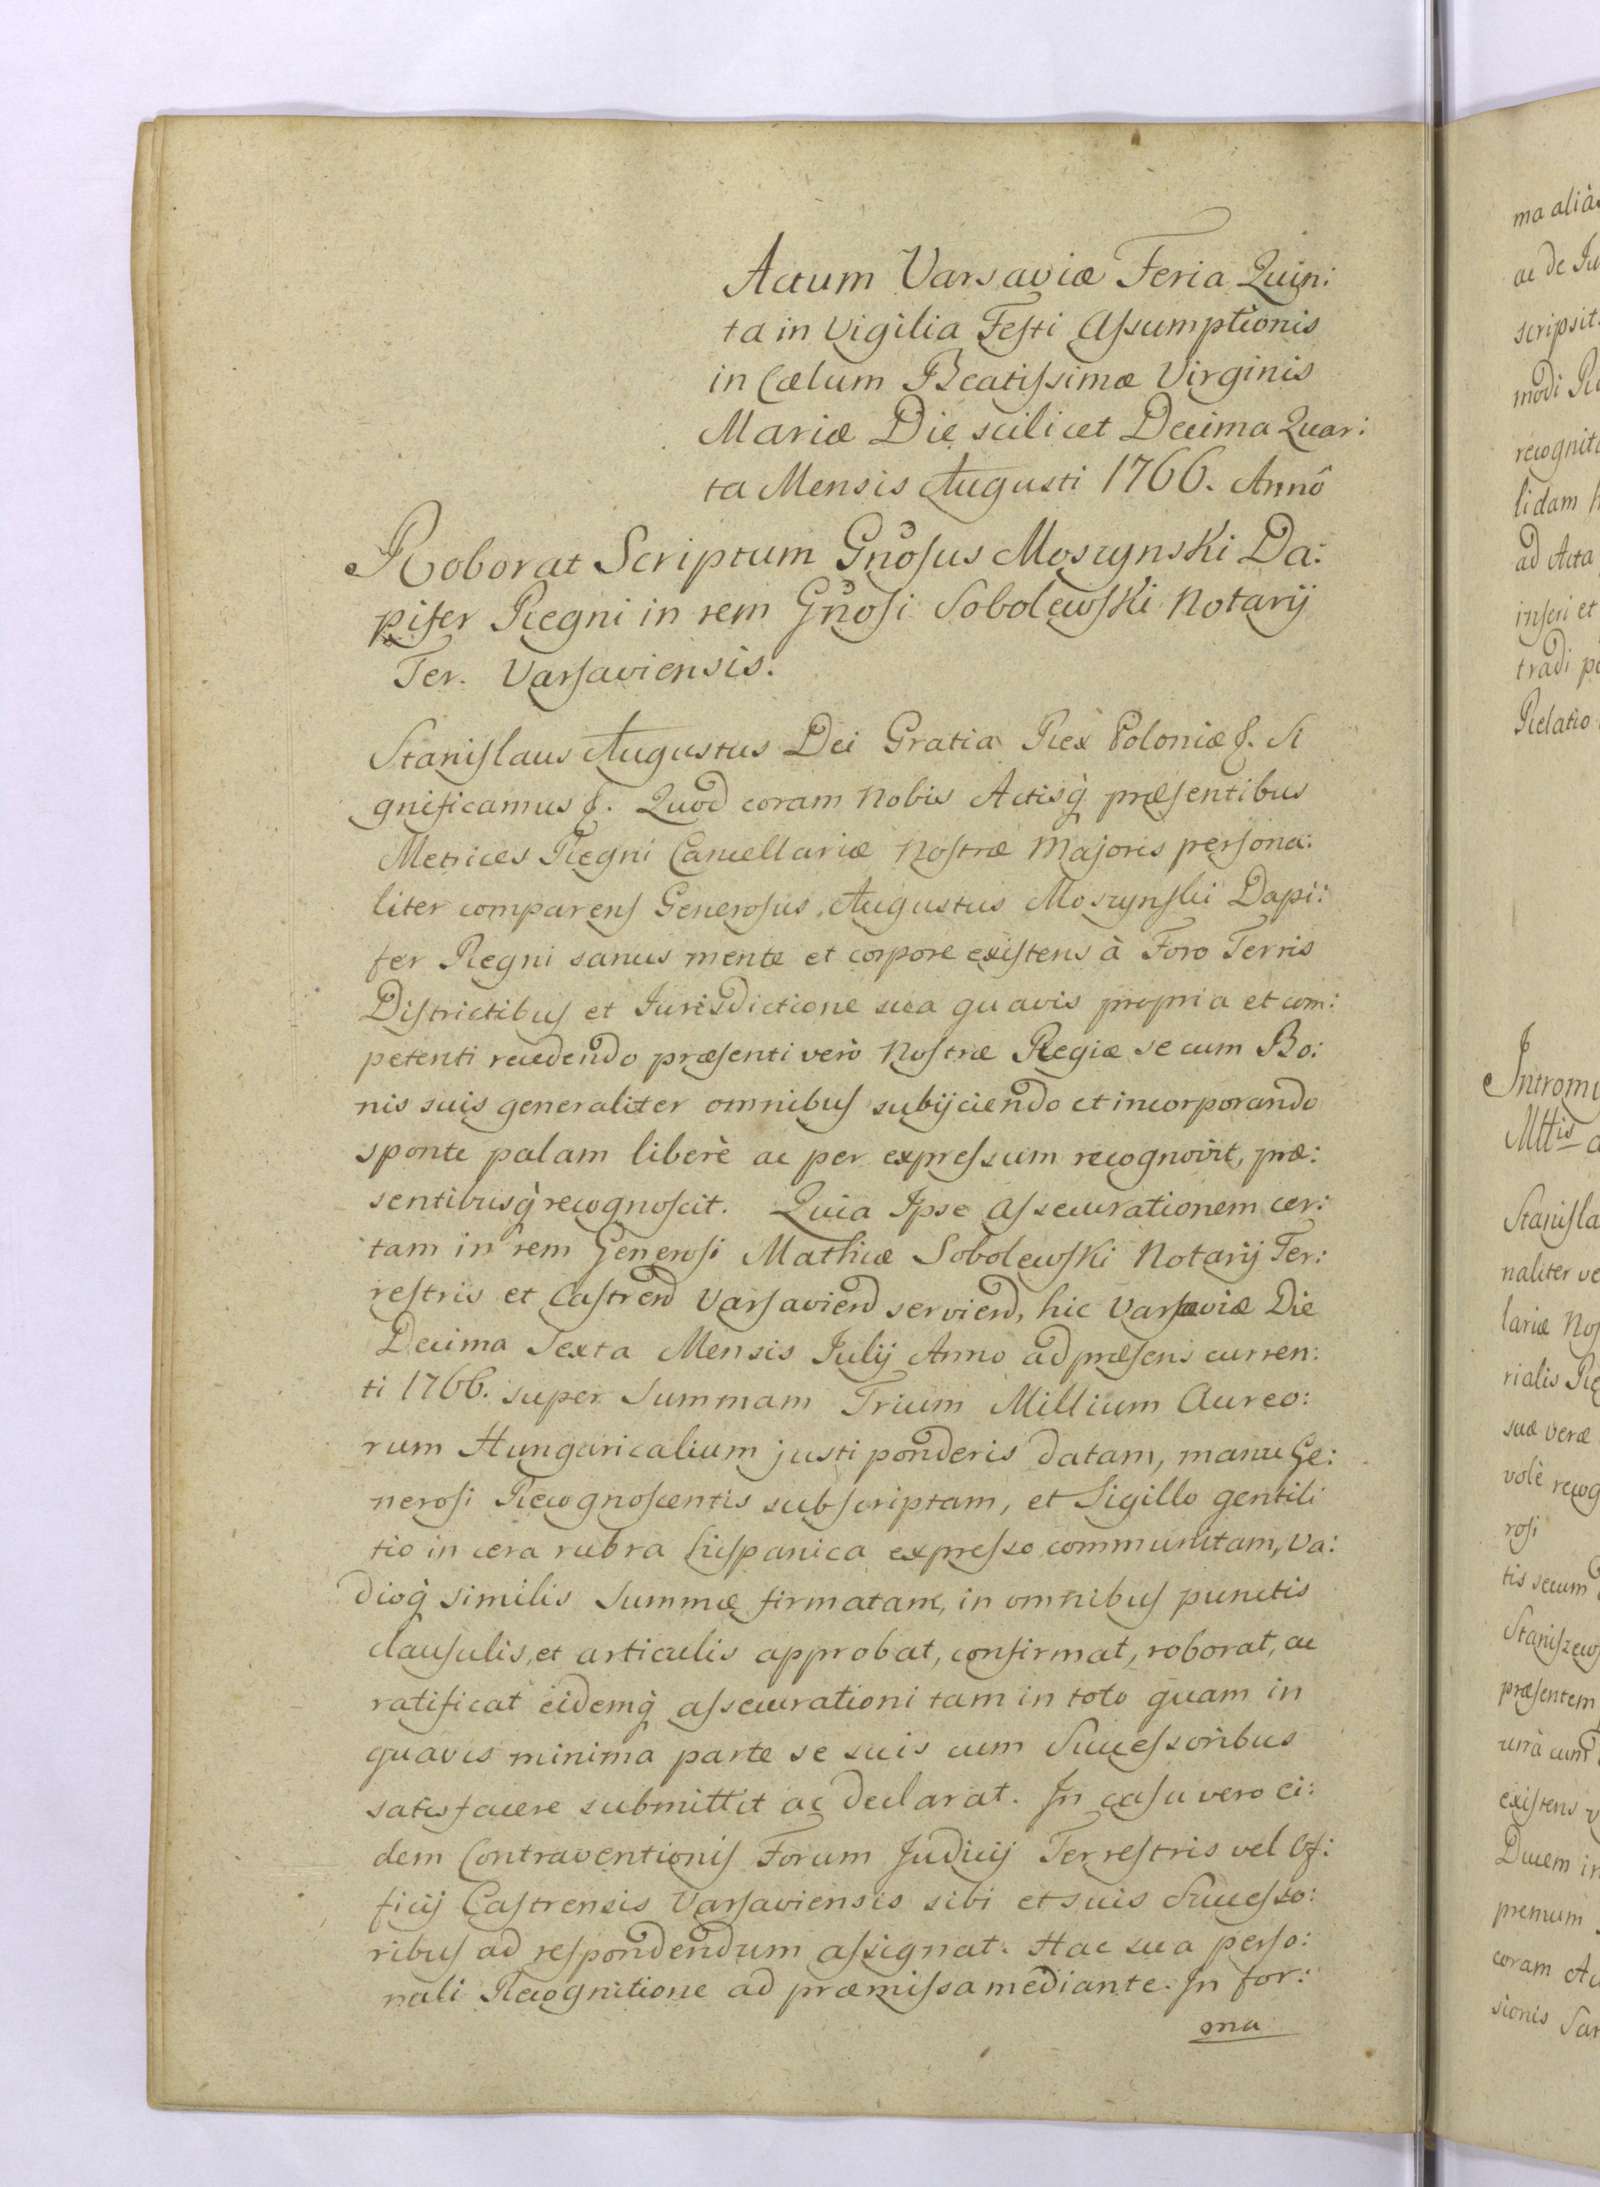 Actum Varsaviæ Feria Quin:
ta in Vigilia Festi Assumptionis
in Cælum Beatissimæ Virginis
Mariæ Die scilicet Decima Quar:
ta Mensis Augusti 1766. Annô
Roborat Scriptum Gnosus Moszynski Da:
pifer Regni in rem Gnosi Sobolewski Notarij
Ter. Varsaviensis.
Stanislaus Augustus Dei Gratia Rex Poloniæ &. Si
gnificamus &. Quod coram Nobis Actisq̀ præsentibus
Metrices Regni Cancellariæ Nostræ Majoris persona:
liter comparens Generosus Augustus Moszynski Dapi:
fer Regni sanus mente et corpore existens à Foro Terris
Districtibus et Iurisdictione sua quavis propria et com:
petenti recedendo præsenti verò Nostræ Regiæ se cum Bo:
nis suis generaliter omnibus subijciendo et incorporando
sponte palam liberè ac per expressum recognovit, præ:
sentibusq̀ recognoscit. Quia Ipse Assecurationem cer:
tam in rem Generosi Mathiæ Sobolewski Notarij Ter:
restris et Castren Varsavien servien, hic Varsaviæ Die
Decima Sexta Mensis Julij Anno ad præsens curren:
ti 1766. super Summam Trium Millium Aureo:
rum Hungaricalium justi ponderis datam, manu Ge:
nerosi Recognoscentis subscriptam, et Sigillo gentili
tio in cera rubra hispanica expresso communitam, Va:
dioq̀ similis Summæ firmatam, in omnibus punctis
clausulis, et articulis approbat, confirmat, roborat, ac
ratificat eidemq̀ assecurationi tam in toto quam in
quavis minima parte se suis cum Successoribus
satisfacere submittit ac declarat. In casu vero ei:
dem Contraventionis Forum Judicij Terrestris vel Of:
ficij Castrensis Varsaviensis sibi et suis Successo:
ribus ad respondendum assignat. Hac sua perso:
nali Recognitione ad præmissa mediante. In for:
ma
ma aliàs
ac de Ju
scripsit
modi Re
recognit
lidam h
ad Acta
inseri et
tradi p
Relatio
Intromi
Mttis a
Stanisla
naliter ve
lariæ Nos
rialis Re
suæ veræ
volè recog
rosi
tis secum
Staniszews
præsentem
unà cum
existens v
Ducem in
premum
coram Ac
sionis Sar